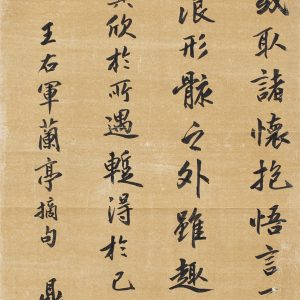 或取諸懷抱悟言一
浪形骸之外雖趣
其欣於所遇蹔得於己
王右軍蘭亭摘句